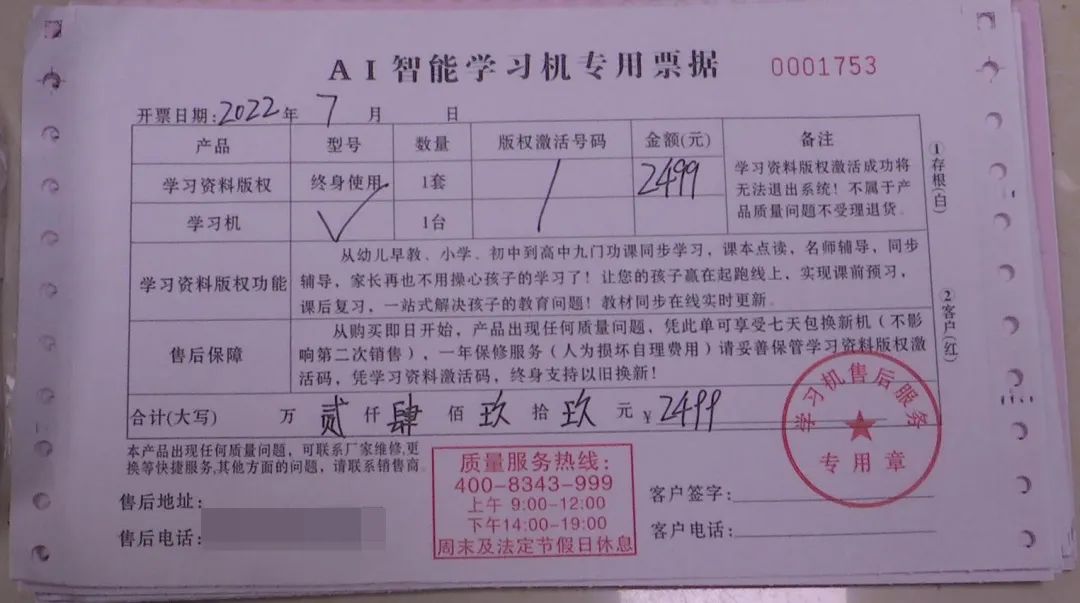 AI智能学习机专用票据 0001753
开票日期:2022年 7 月 日
产品 型号 数量 版权激活号码 金额(元) 备注
学习资料版权 终身使用 1套 2499 学习资料版权激活成功将
无法退出系统！不属于产
品质量问题不受理退货。
学习机 ✓ 1台
学习资料版权功能
从幼儿早教、小学、初中到高中九门功课同步学习，课本点读，名师辅导，同步
辅导，家长再也不用操心孩子的学习了！让您的孩子赢在起跑线上，实现课前预习，
课后复习，一站式解决孩子的教育问题！教材同步在线实时更新。
售后保障
从购买即日开始，产品出现任何质量问题，凭此单可享受七天包换新机（不影
响第二次销售），一年保修服务（人为损坏自理费用）请妥善保管学习资料版权激
活码，凭学习资料激活码，终身支持以旧换新！
合计(大写) 万 贰 仟 肆 佰 玖 拾 玖 元 ¥2499
①存根(白)
②客户(红)
本产品出现任何质量问题，可联系厂家维修,更
换等快捷服务,其他方面的问题，请联系销售商。
售后地址:
售后电话:
质量服务热线:
400-8343-999
上午 9:00-12:00
下午14:00-19:00
周末及法定节假日休息
客户签字:
客户电话:
学习机售后服务
专用章